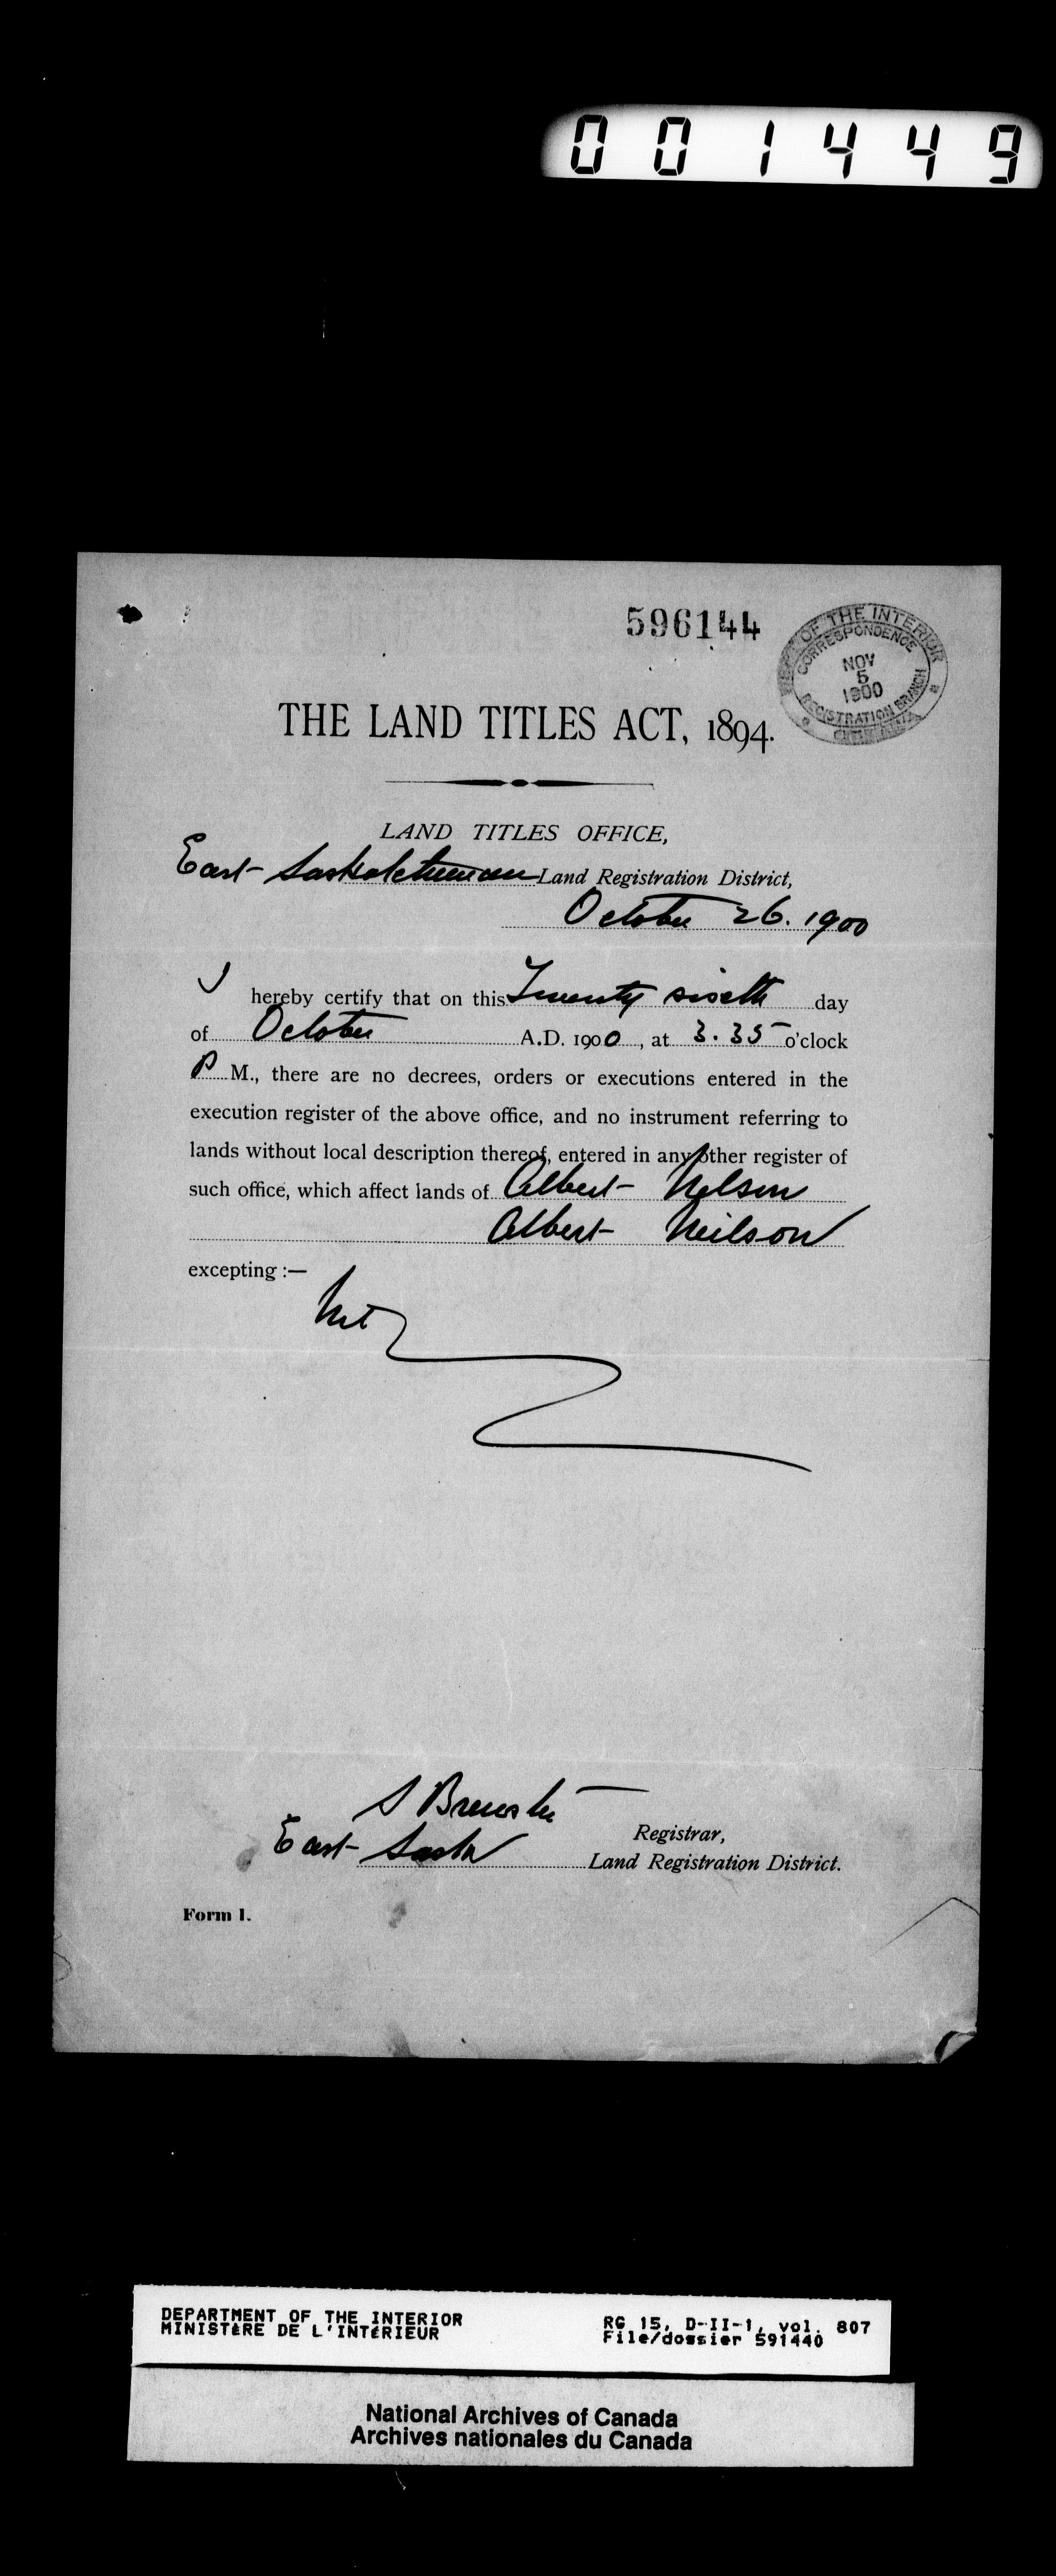 001449
596144
OF THE INTERIOR
CORRESPONDENCE
NOV
5
1900
REGISTRATION BRANCH
THE LAND TITLES ACT, 1894.
LAND TITLES OFFICE,
East Saskatchewan Land Registration District,
October 26. 1900
I hereby certify that on this Twenty sixth day
of October A.D. 1900, at 3.35 o'clock
P M., there are no decrees, orders or executions entered in the
execution register of the above office, and no instrument referring to
lands without local description thereof, entered in any other register of
such office, which affect lands of Albert Nelson
Albert Neilson
excepting :—
Nil
S Brewster
Registrar,
East Sask Land Registration District.
Form 1.
DEPARTMENT OF THE INTERIOR
MINISTÈRE DE L'INTÉRIEUR
RG 15, D-II-1, vol. 807
File/dossier 591440
National Archives of Canada
Archives nationales du Canada